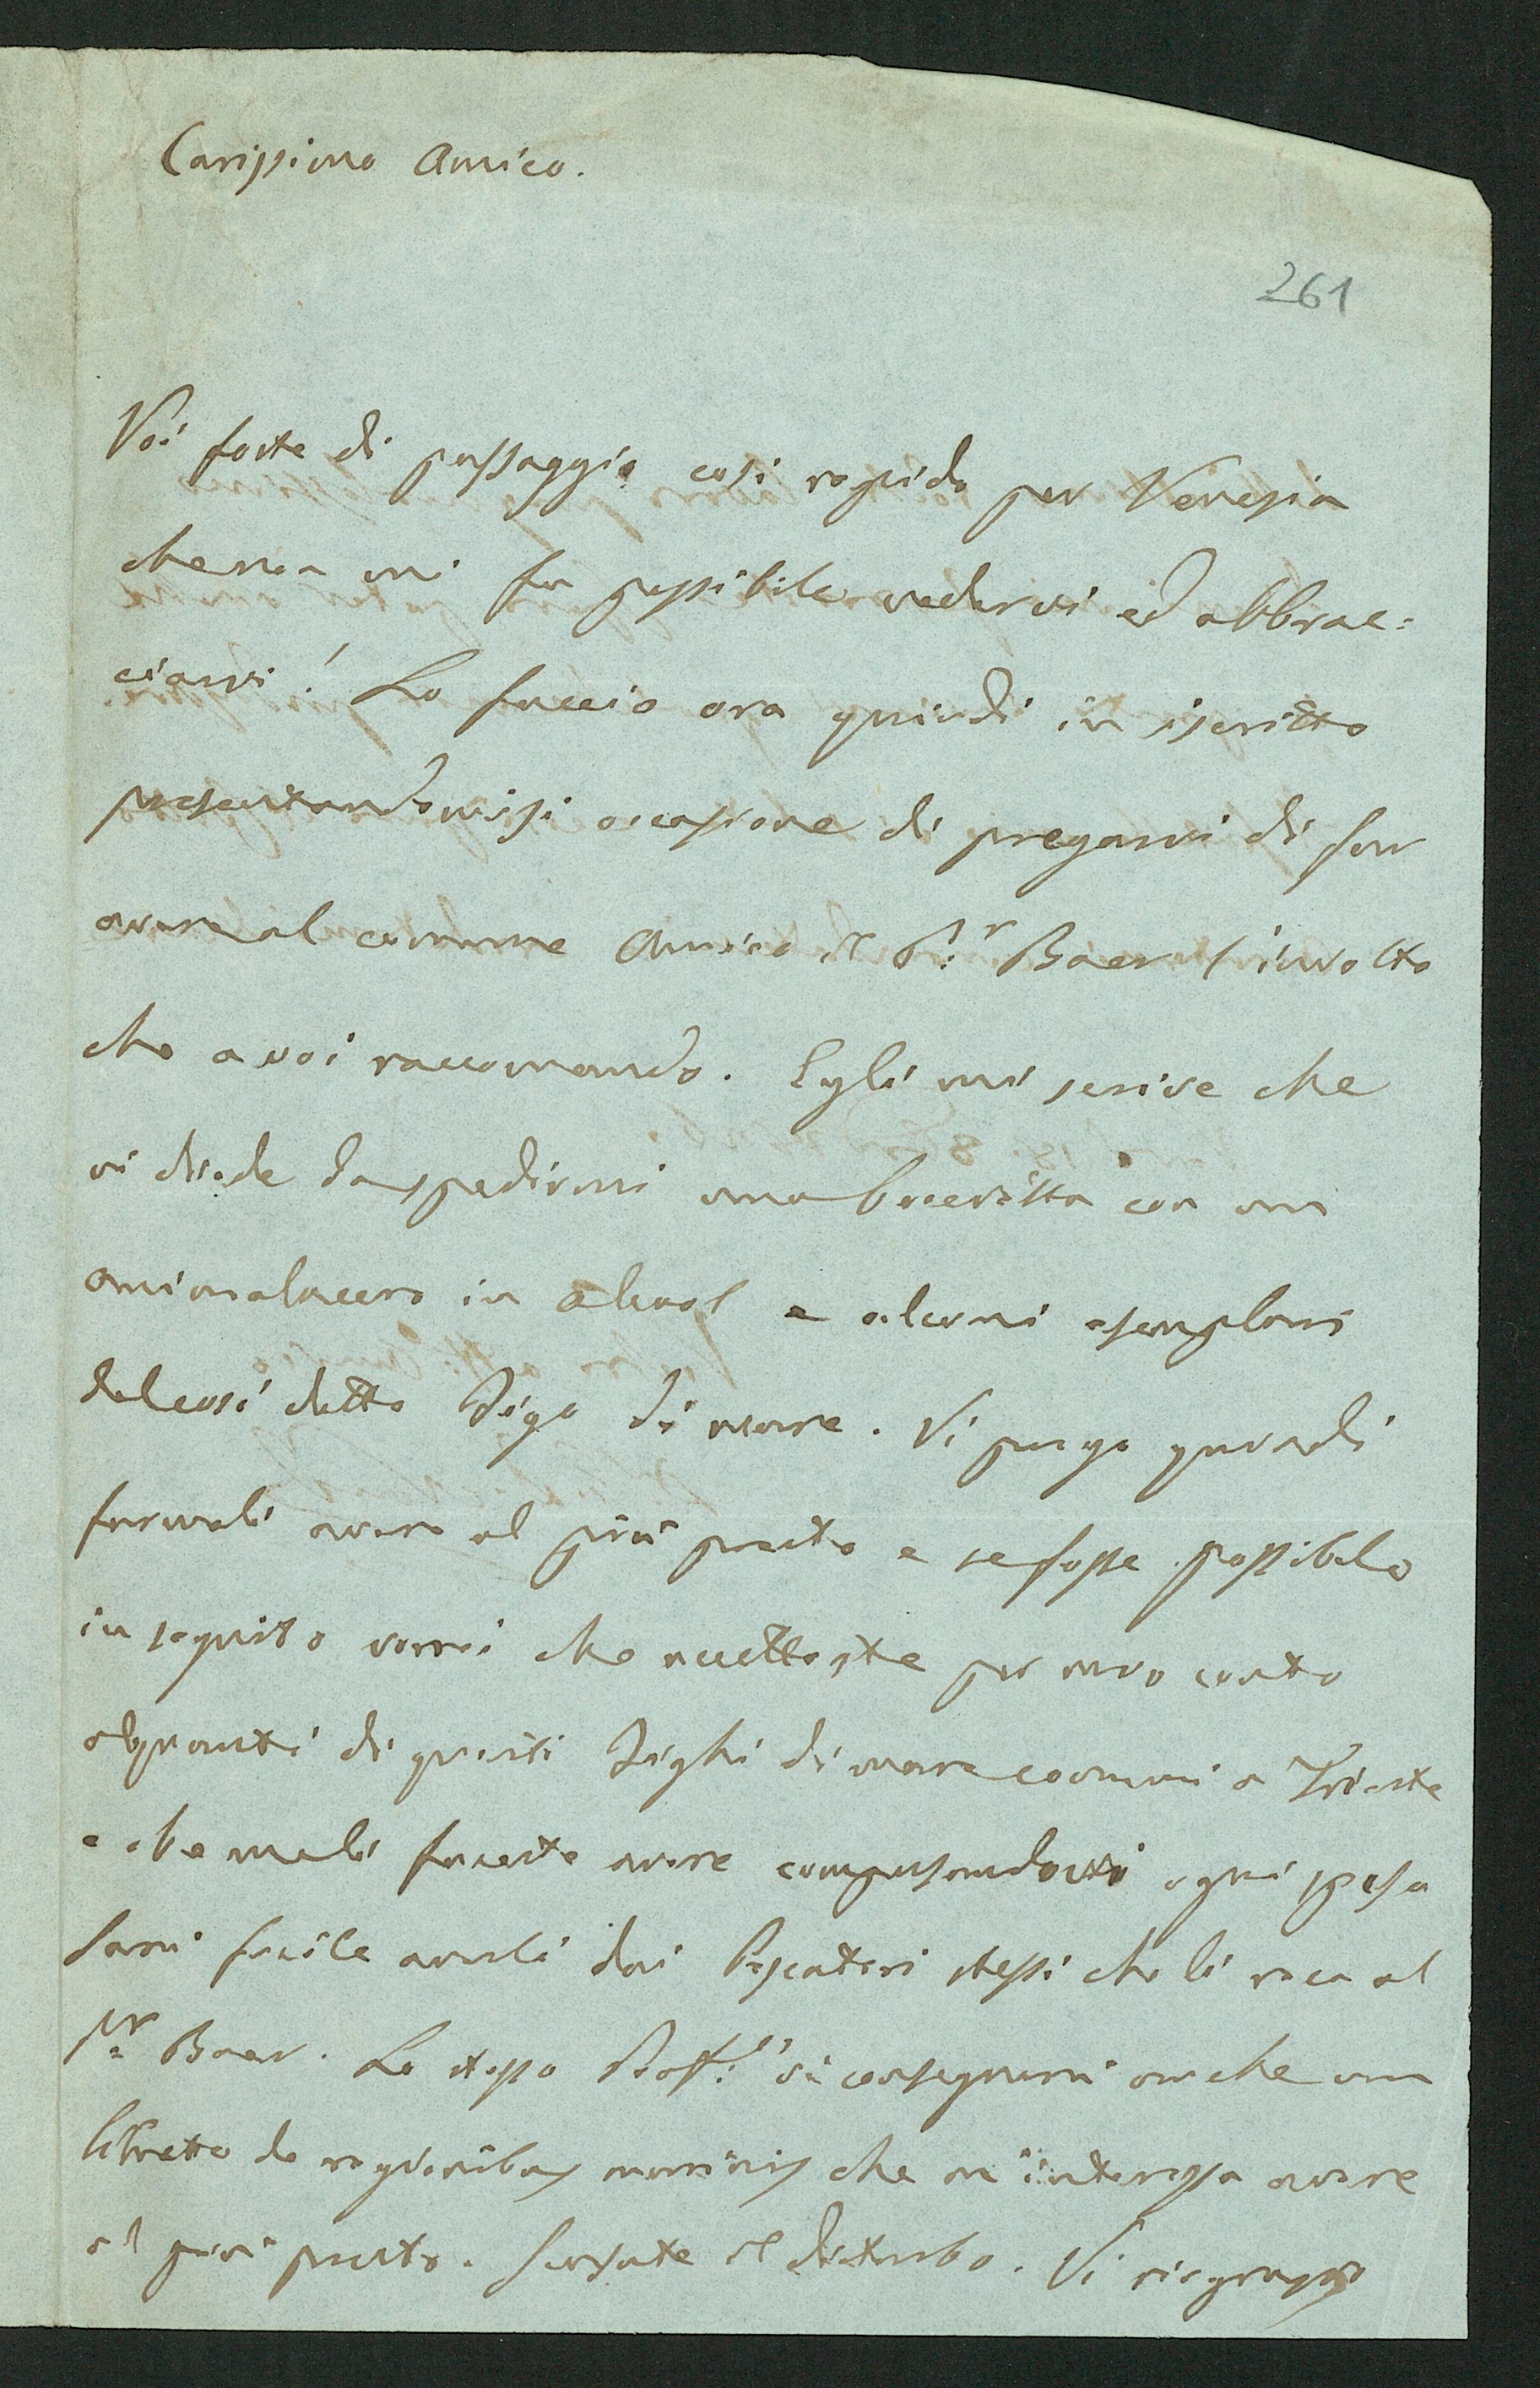 Carissimo Amico.
261
Voi foste di passaggio così rapido per Venezia
che non mi fu possibile vedervi ed abbrac=
ciarvi! Lo faccio ora quindi in iscritto
presentandomisi occasione di pregarvi di far
avere al comune Amico il S.r Baer l'involto
che a voi raccomando. Egli mi scrive che
vi diede da spedirmi una boccetta con un
animaluccio in alcool e alcuni esemplari
del così detto Figo di mare. Vi prego quindi
farmeli avere al più presto e se fosse possibile
in seguito vorrei che accettaste per mio conto
alquanti di questi Fighi di mare comuni a Trieste
e che me li faceste avere compensandovi ogni spesa
sarà facile averli dai Pescatori stessi che li reca al
S.r Baer. Lo stesso Prof.r vi consegnerà anche un
libretto de marinis che m'interessa avere
al più presto. Scusate il disturbo. Vi ringrazio